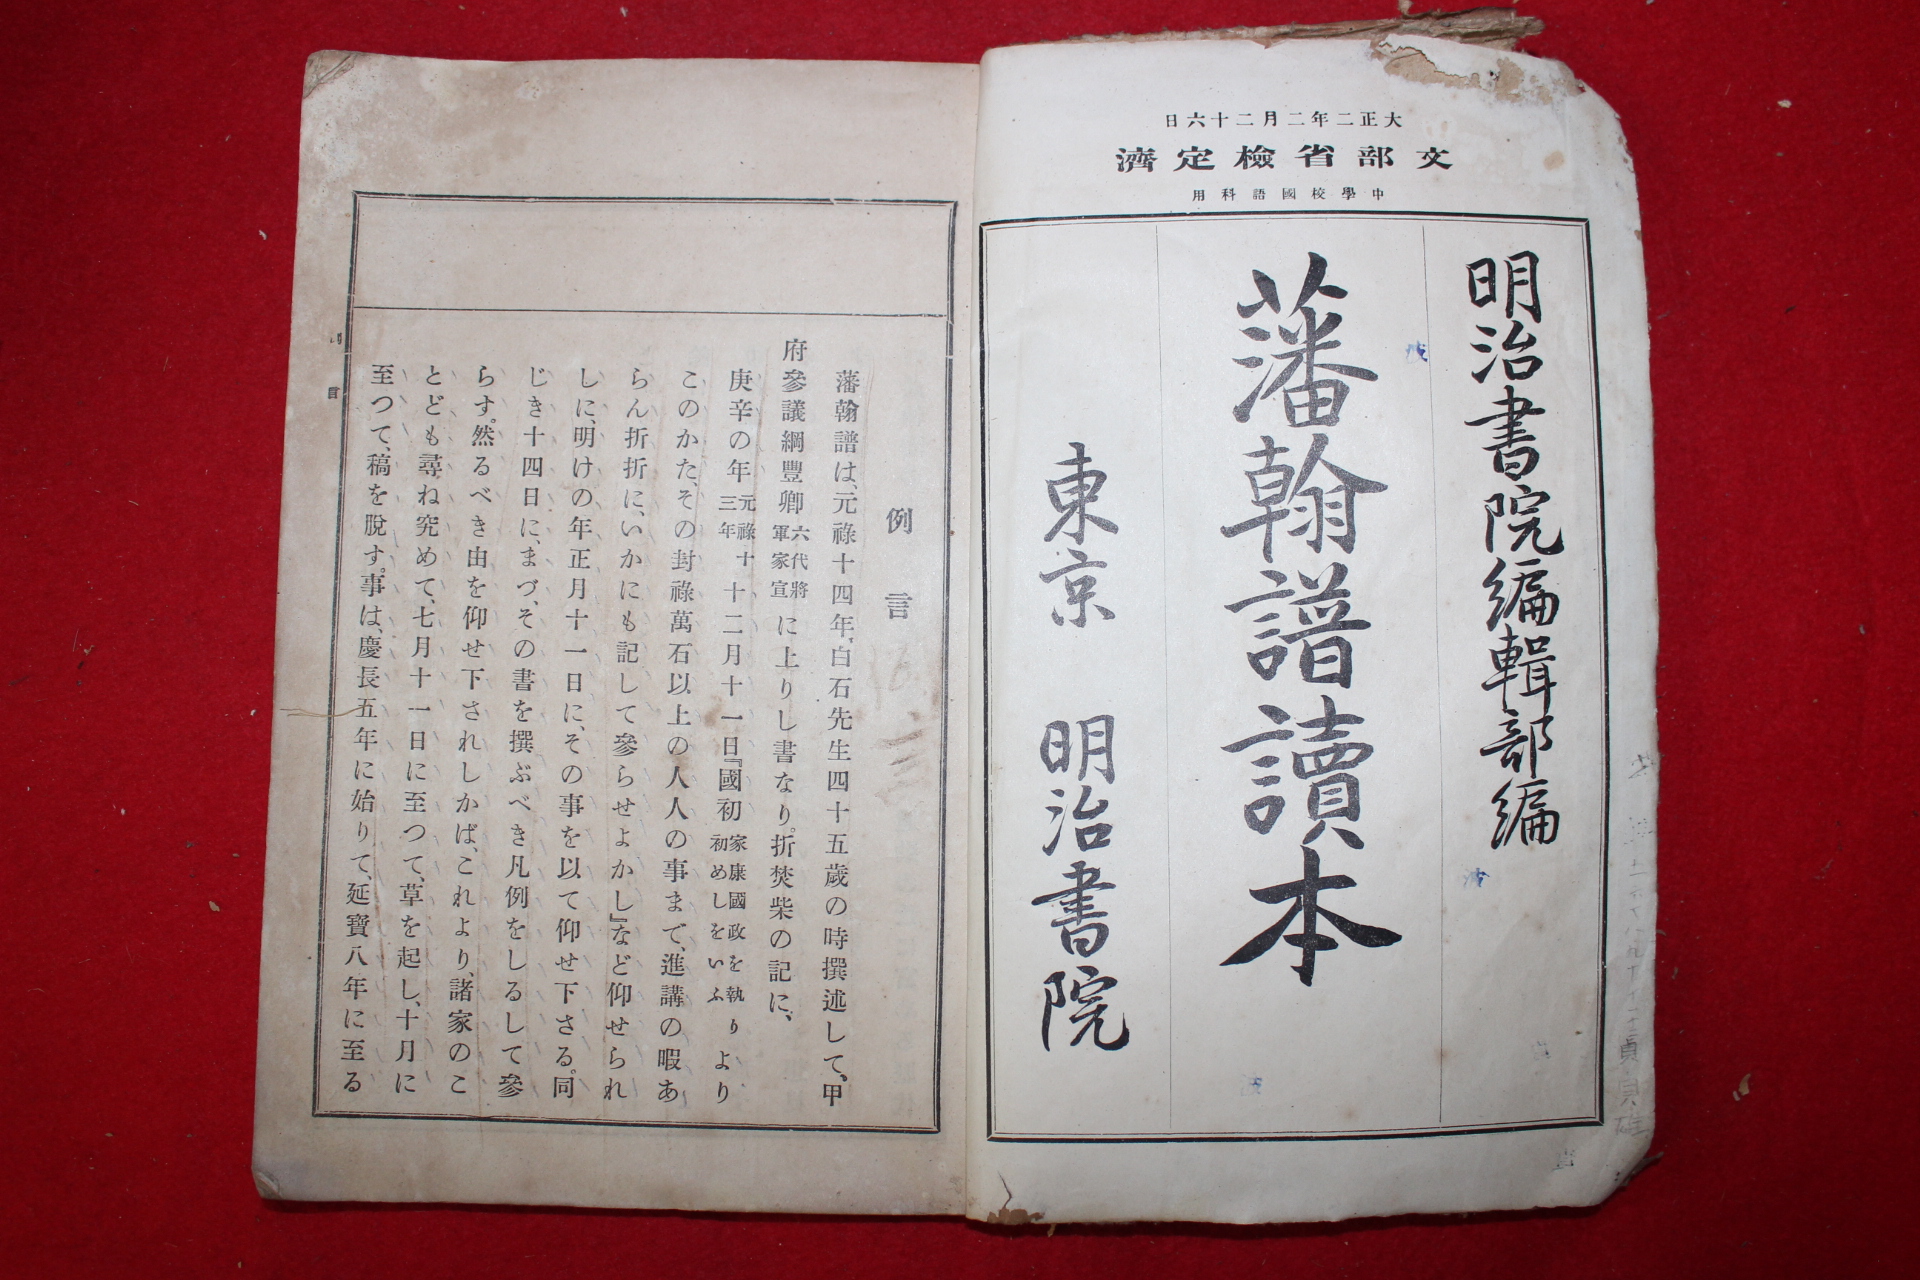 大正二年二月二十六日
文部省檢定濟
中學校國語科用
明治書院編輯部編
藩翰譜讀本
東京 明治書院
例言
藩翰譜は、元祿十四年、白石先生四十五歲の時撰述して、甲
府參議綱豐卿六代將軍家宣に上りし書なり。折焚柴の記に、
庚辛の年元祿十三年十二月十一日『國初家康國政を執り初めしをいふより
このかた、その封祿萬石以上の人人の事まで、進講の暇あ
らん折折に、いかにも記して參らせよかし』など仰せられ
しに、明けの年正月十一日に、その事を以て仰せ下さる。同
じき十四日に、まづ、その書を撰ぶべき凡例をしるして參
らす。然るべき由を仰せ下されしかば、これより、諸家のこ
とども尋ね究めて、七月十一日に至つて、草を起し、十月に
至つて、稿を脫す。事は、慶長五年に始りて、延寶八年に至る